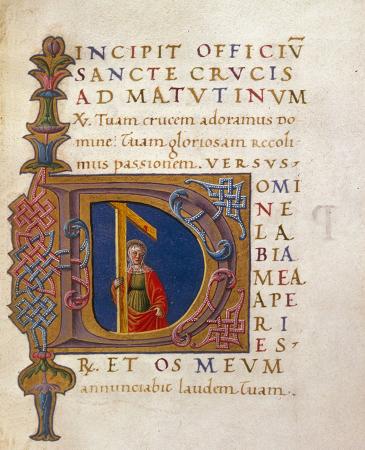 INCIPIT OFFICIŪ
SANCTE CRVCIS
AD MATVTINVM
℣. Tuam crucem adoramus do
mine: Tuam gloriosam recoli
mus passionem. VERSVS·
DOMI
NE
LA
BIA
MEA
APE
RI
ES·
℟. ET OS MEVM
annunciabit laudem tuam.